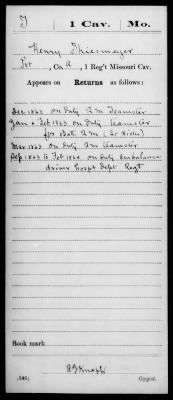 T | 1 Cav. | Mo.
Henry Thiesmeyer
Pvt, Co. A, 1 Reg't Missouri Cav.
Appears on
Returns as follows:
Dec 1862 on Duty Q M Teamster
Jan & Feb 1863 on Duty teamster
for Batt. Q M
Mar 1863 on Duty Q M teamster
1863 to Feb 1864 on Duty ambulance
driver Hospt Dept Regt
Book mark:
(546)
Copyist.